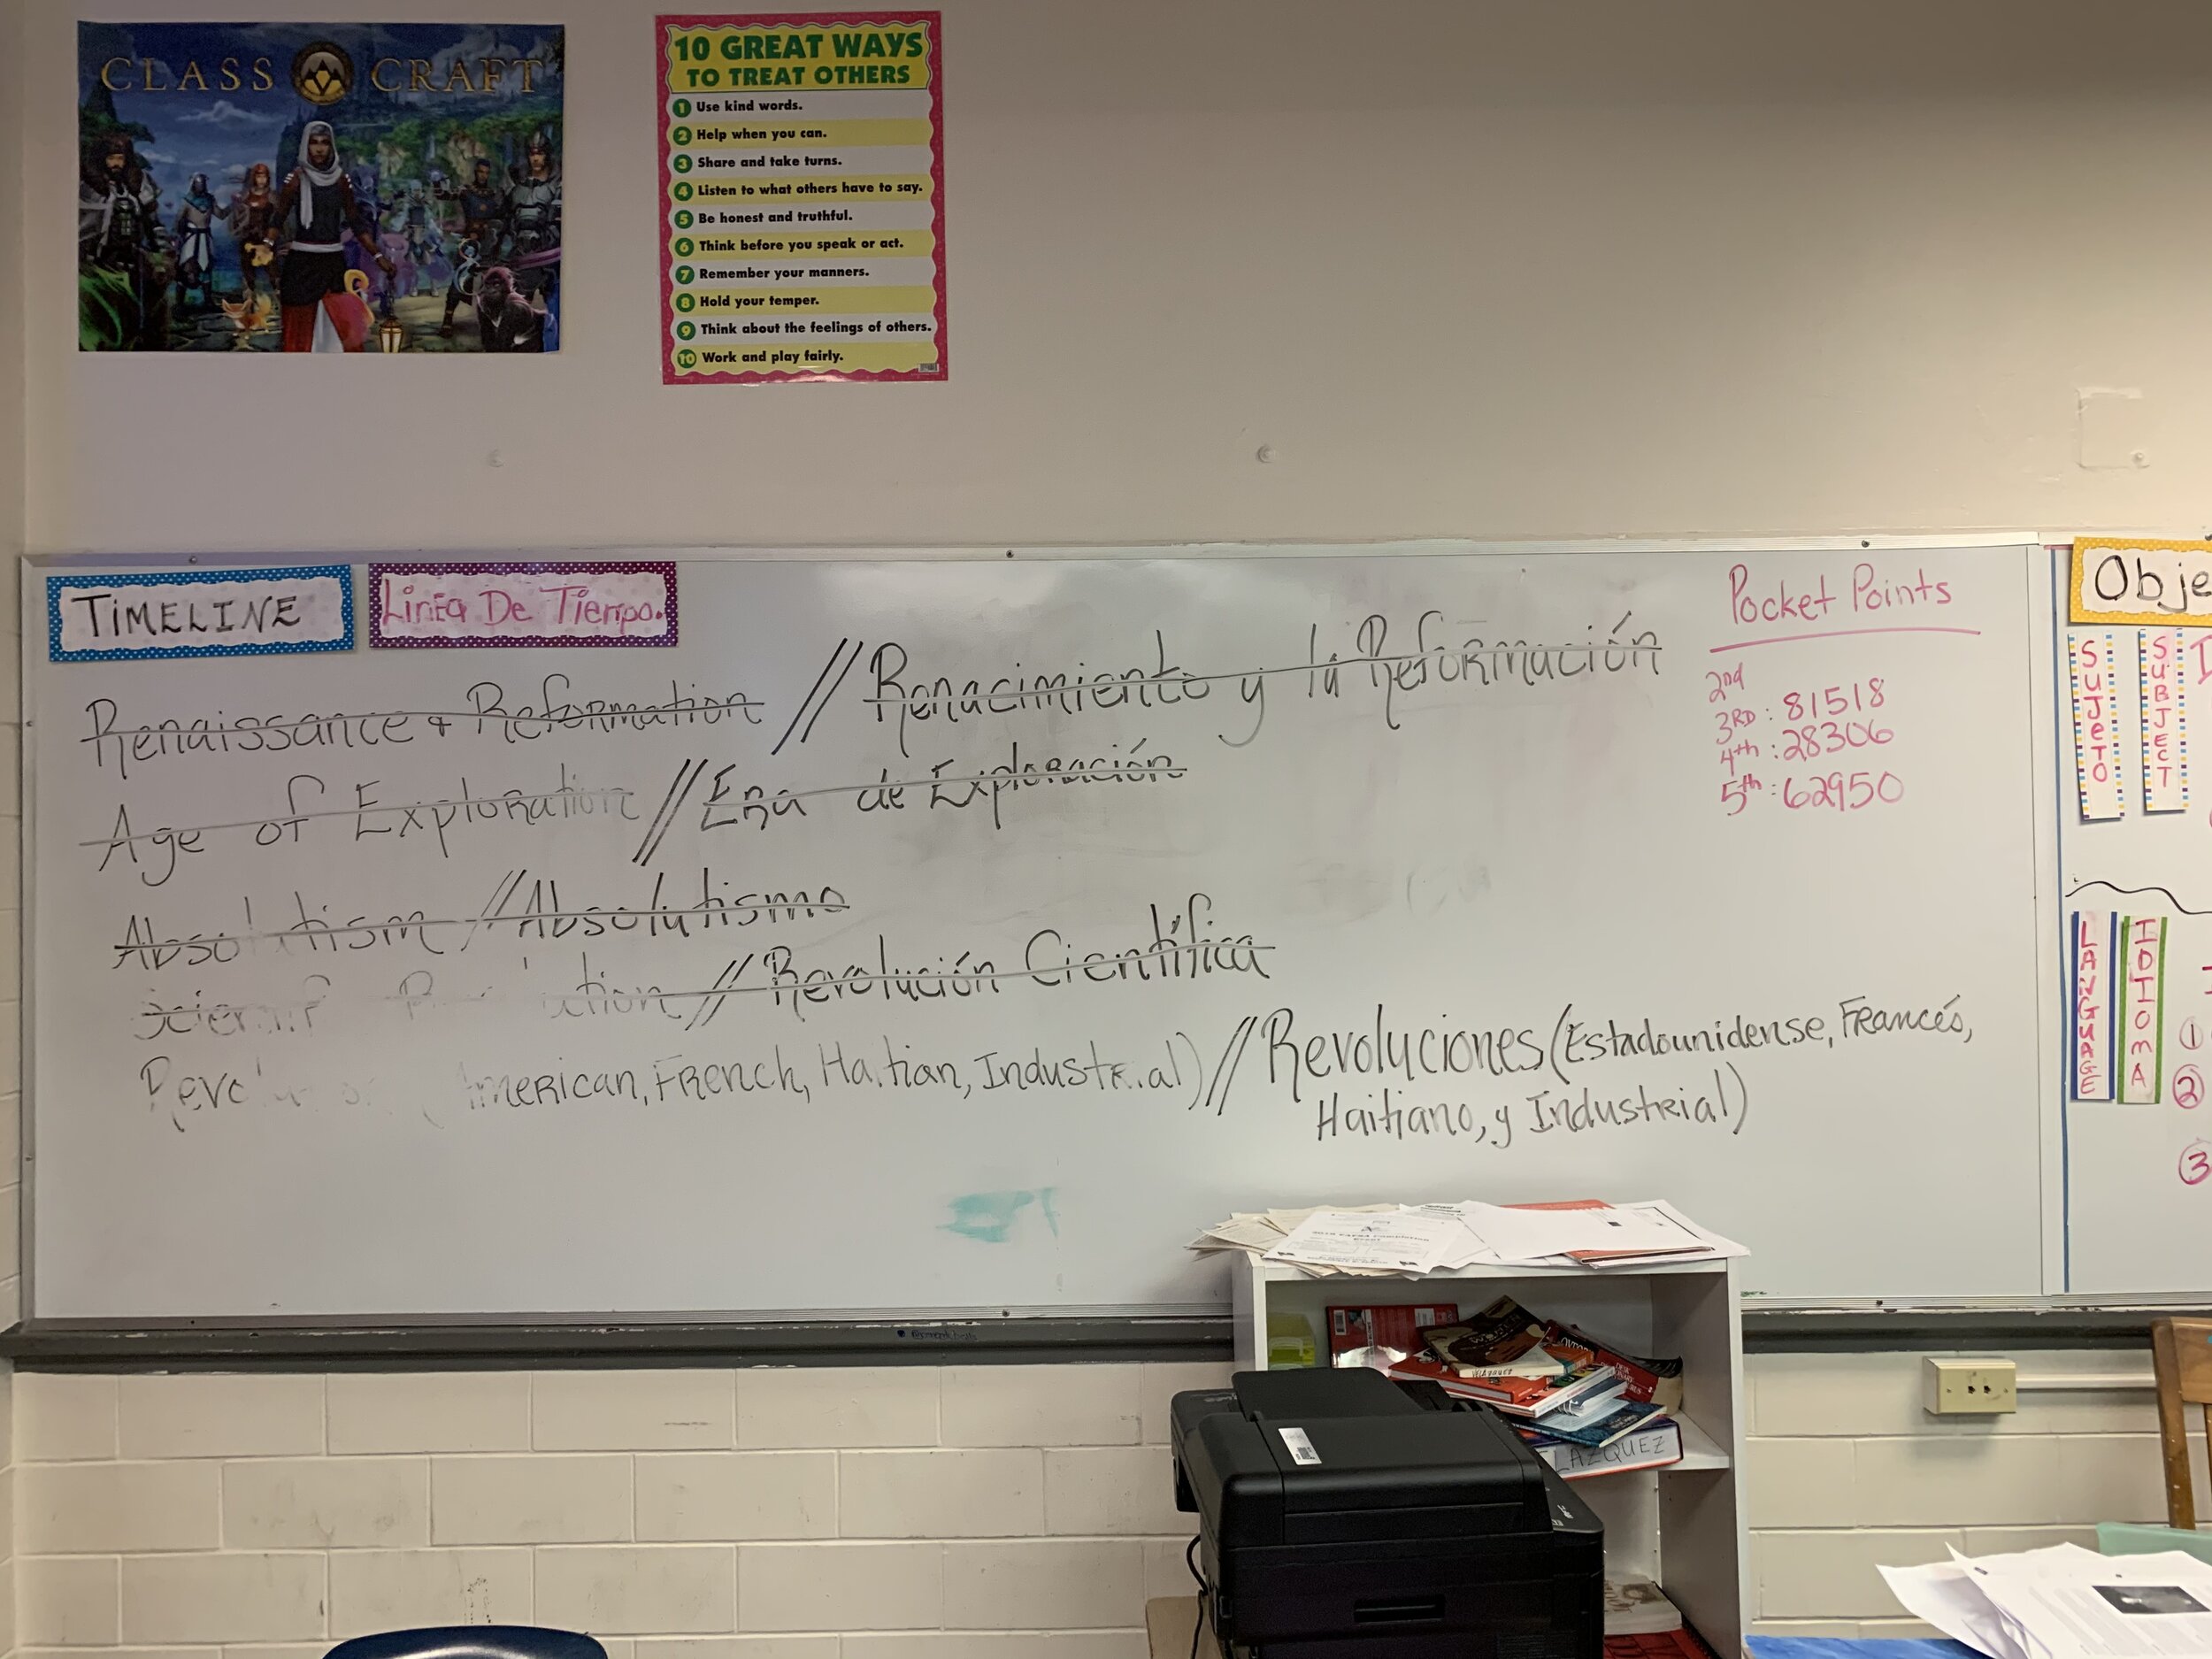 CLASS CRAFT
10 GREAT WAYS
TO TREAT OTHERS
1 Use kind words.
2 Help when you can.
3 Share and take turns.
4 Listen to what others have to say.
5 Be honest and truthful.
6 Think before you speak or act.
7 Remember your manners.
8 Hold your temper.
9 Think about the feelings of others.
10 Work and play fairly.
TIMELINE
Linea De Tiempo.
Renaissance & Reformation // Renacimiento y la Reformación
Age of Exploration // Era de Exploración
Absolutism // Absolutismo
// Revolución Científica
American, French, Haitian, Industrial) // Revoluciones (Estadounidense, Francés,
Haitiano, y Industrial)
Pocket Points
2nd
3RD: 81518
4th: 28306
5th: 62950
Obje
SUJETO
SUBJECT
LANGUAGE
IDIOMA
1
2
3
VELAZQUEZ
LAZQUEZ